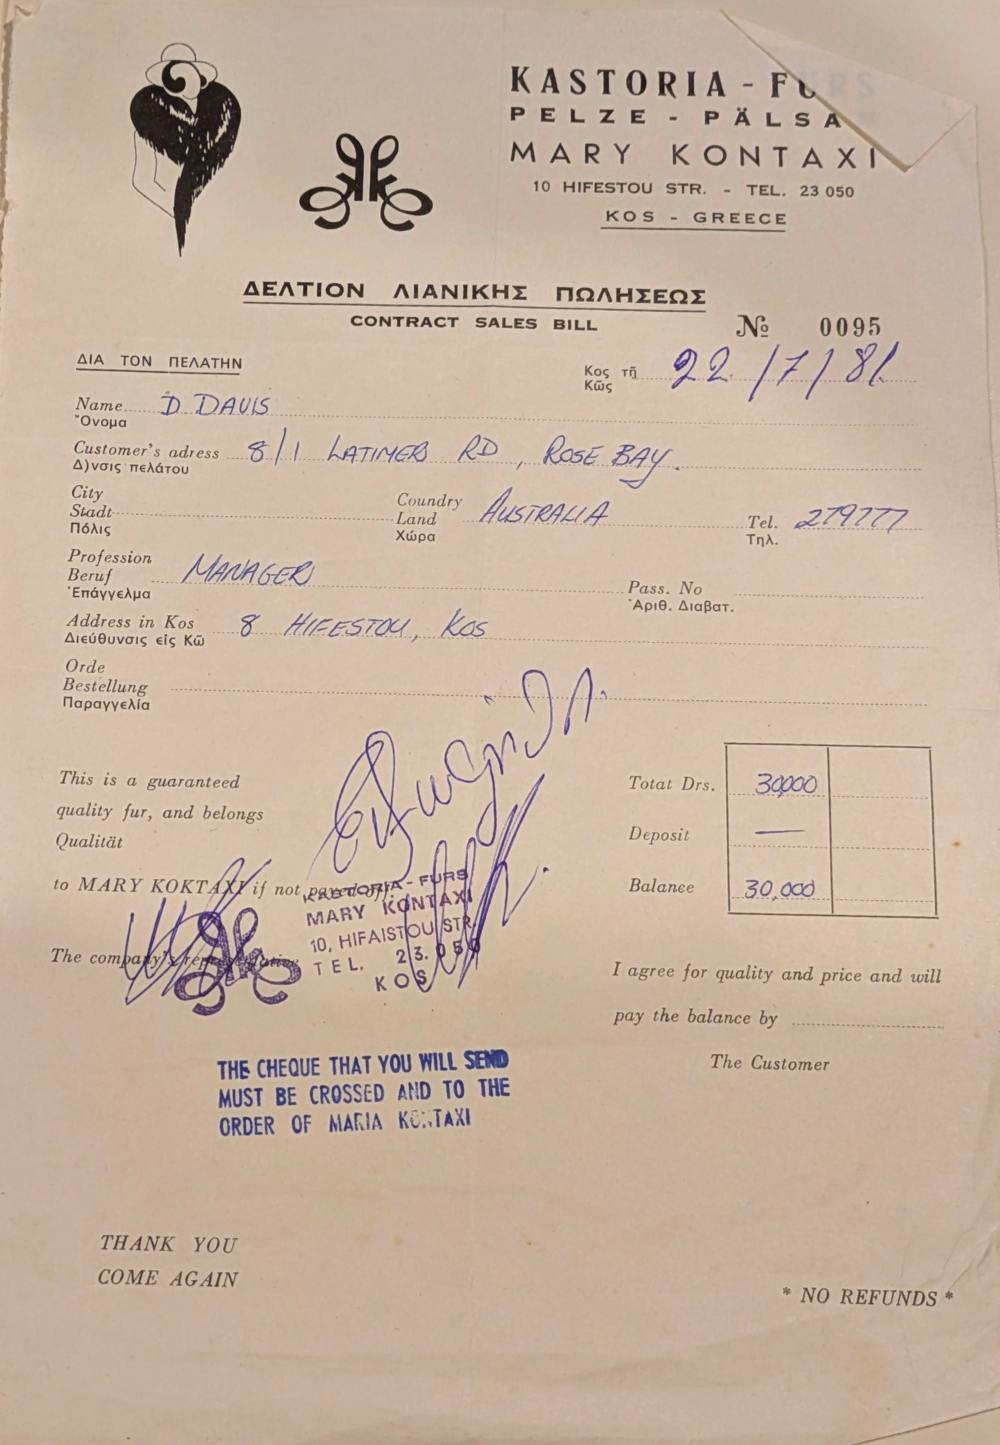 KASTORIA - FURS
PELZE - PÄLSA
MARY KONTAXI
10 HIFESTOU STR. - TEL. 23 050
KOS - GREECE
ΔΕΛΤΙΟΝ ΛΙΑΝΙΚΗΣ ΠΩΛΗΣΕΩΣ
CONTRACT SALES BILL
№ 0095
ΔΙΑ ΤΟΝ ΠΕΛΑΤΗΝ
Κος τῆ 22/7/81
Κῶς
Name D DAVIS
Ὄνομα
Customer's adress 8/1 LATIMER RD, ROSE BAY.
Δ)νσις πελάτου
City
Stadt
Πόλις
Coundry
Land AUSTRALIA
Χώρα
Tel. 279777
Τηλ.
Profession
Beruf MANAGER
Ἐπάγγελμα
Pass. No
Ἀριθ. Διαβατ.
Address in Kos 8 HIFESTOU, KOS
Διεύθυνσις εἰς Κῶ
Orde
Bestellung
Παραγγελία
This is a guaranteed
quality fur, and belongs
Qualität
to MARY KOKTAXI if not payed off.
The company's representative
Total Drs. 30,000
Deposit —
Balance 30,000
KASTORIA - FURS
MARY KONTAXI
10, HIFAISTOU STR.
TEL. 23.050
KOS
I agree for quality and price and will
pay the balance by
The Customer
THE CHEQUE THAT YOU WILL SEND
MUST BE CROSSED AND TO THE
ORDER OF MARIA KONTAXI
THANK YOU
COME AGAIN
* NO REFUNDS *